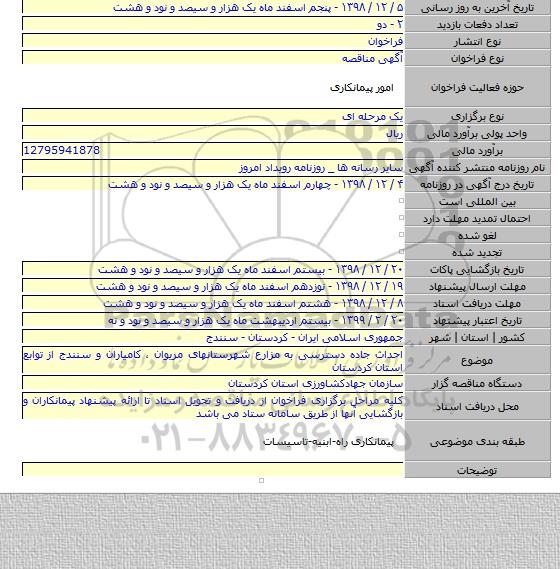 تاریخ آخرین به روز رسانی ۵ / ۱۲ / ۱۳۹۸ - پنجم اسفند ماه یک هزار و سیصد و نود و هشت
تعداد دفعات بازدید ۲ - دو
نوع انتشار فراخوان
نوع فراخوان آگهی مناقصه
حوزه فعالیت فراخوان امور پیمانکاری
نوع برگزاری یک مرحله ای
واحد پولی برآورد مالی ریال
برآورد مالی 12795941878
نام روزنامه منتشر کننده آگهی سایر رسانه ها _ روزنامه رویداد امروز
تاریخ درج آگهی در روزنامه ۴ / ۱۲ / ۱۳۹۸ - چهارم اسفند ماه یک هزار و سیصد و نود و هشت
بین المللی است
احتمال تمدید مهلت دارد
لغو شده
تجدید شده
تاریخ بازگشایی پاکات ۲۰ / ۱۲ / ۱۳۹۸ - بیستم اسفند ماه یک هزار و سیصد و نود و هشت
مهلت ارسال پیشنهاد ۱۹ / ۱۲ / ۱۳۹۸ - نوزدهم اسفند ماه یک هزار و سیصد و نود و هشت
مهلت دریافت اسناد ۸ / ۱۲ / ۱۳۹۸ - هشتم اسفند ماه یک هزار و سیصد و نود و هشت
تاریخ اعتبار پیشنهاد ۲۰ / ۲ / ۱۳۹۹ - بیستم اردیبهشت ماه یک هزار و سیصد و نود و نه
کشور | استان | شهر جمهوری اسلامی ایران - کردستان - سنندج
موضوع احداث جاده دسترسی به مزارع شهرستانهای مریوان ، کامیاران و سنندج از توابع
استان کردستان
دستگاه مناقصه گزار سازمان جهادکشاورزی استان کردستان
محل دریافت اسناد کلیه مراحل برگزاری فراخوان از دریافت و تحویل اسناد تا ارائه پیشنهاد پیمانکاران و
بازگشایی آنها از طریق سامانه ستاد می باشد
۰۲۱-۸۸۳۴۹۶۷۰-۵
طبقه بندی موضوعی پیمانکاری راه-ابنیه-تاسیسات
توضیحات